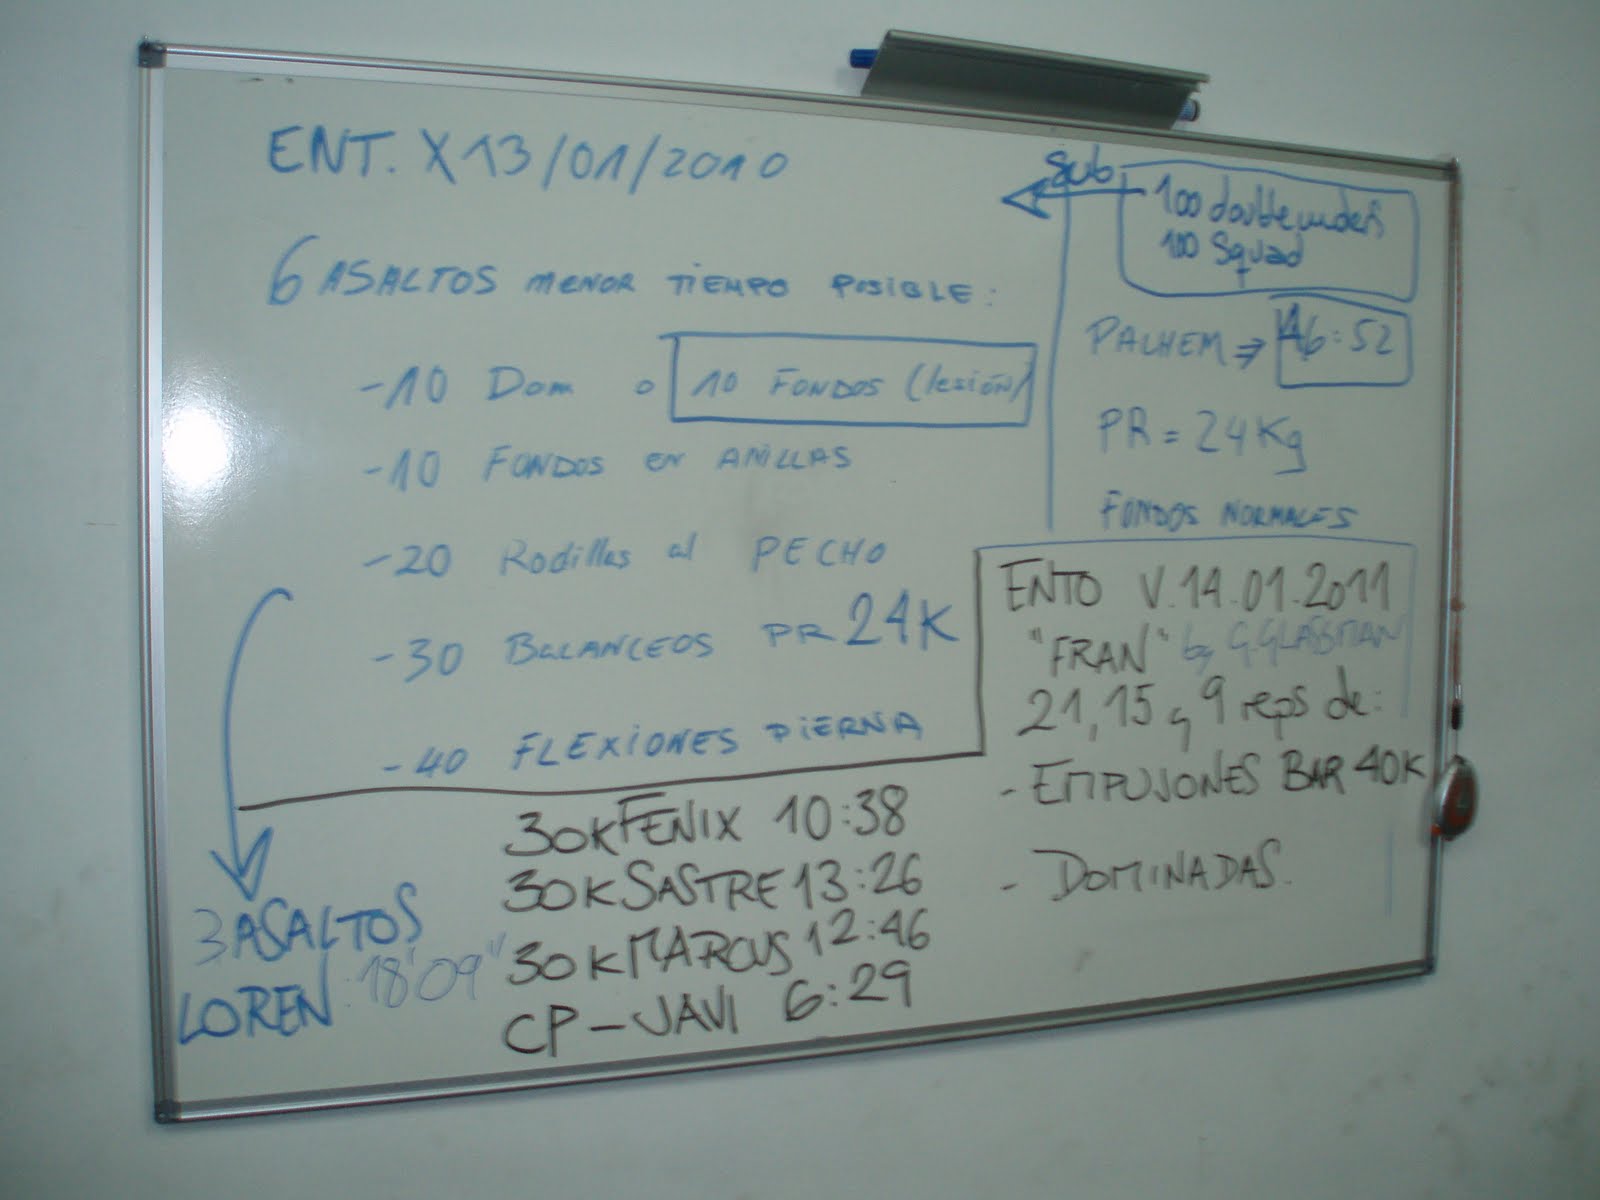 ENT. X 13/01/2010
6 ASALTOS MENOR TIEMPO POSIBLE:
-10 Dom o 10 FONDOS (lesión)
-10 FONDOS en ANILLAS
-20 Rodillas al PECHO
-30 BALANCEOS PR 24K
-40 FLEXIONES PIERNA
3 ASALTOS
LOREN: 18'09"
sub
100 double unders
100 Squad
PALHEM ⇒ 46:52
PR = 24Kg
FONDOS NORMALES
ENTO V.14.01.2011
"FRAN" by G.GLASSMAN
21, 15 y 9 reps de:
- EMPUJONES BAR 40K
- DOMINADAS.
30K FENIX 10:38
30K SASTRE 13:26
30K MARCUS 12:46
CP - JAVI 6:29